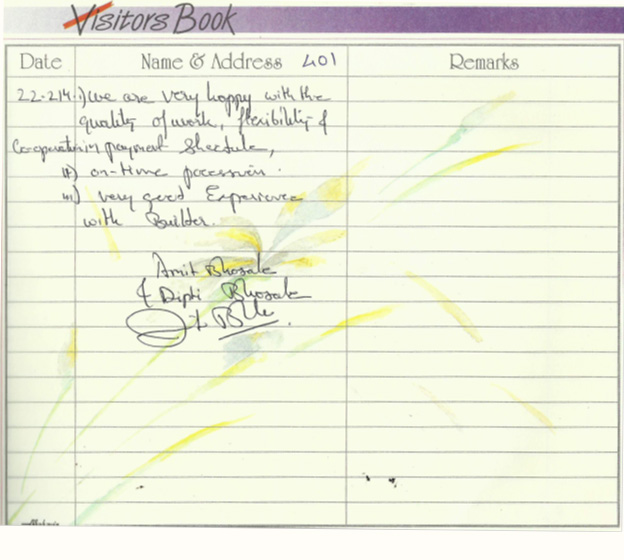 Visitors Book
Date Name & Address 401 Remarks
22-214. i) we are very happy with the
quality of work, flexibility &
Co-operation payment Sheedule,
ii) on-time possession.
iii) very good Experience
with Builder.
Amit Bhosale
& Dipti Bhosale